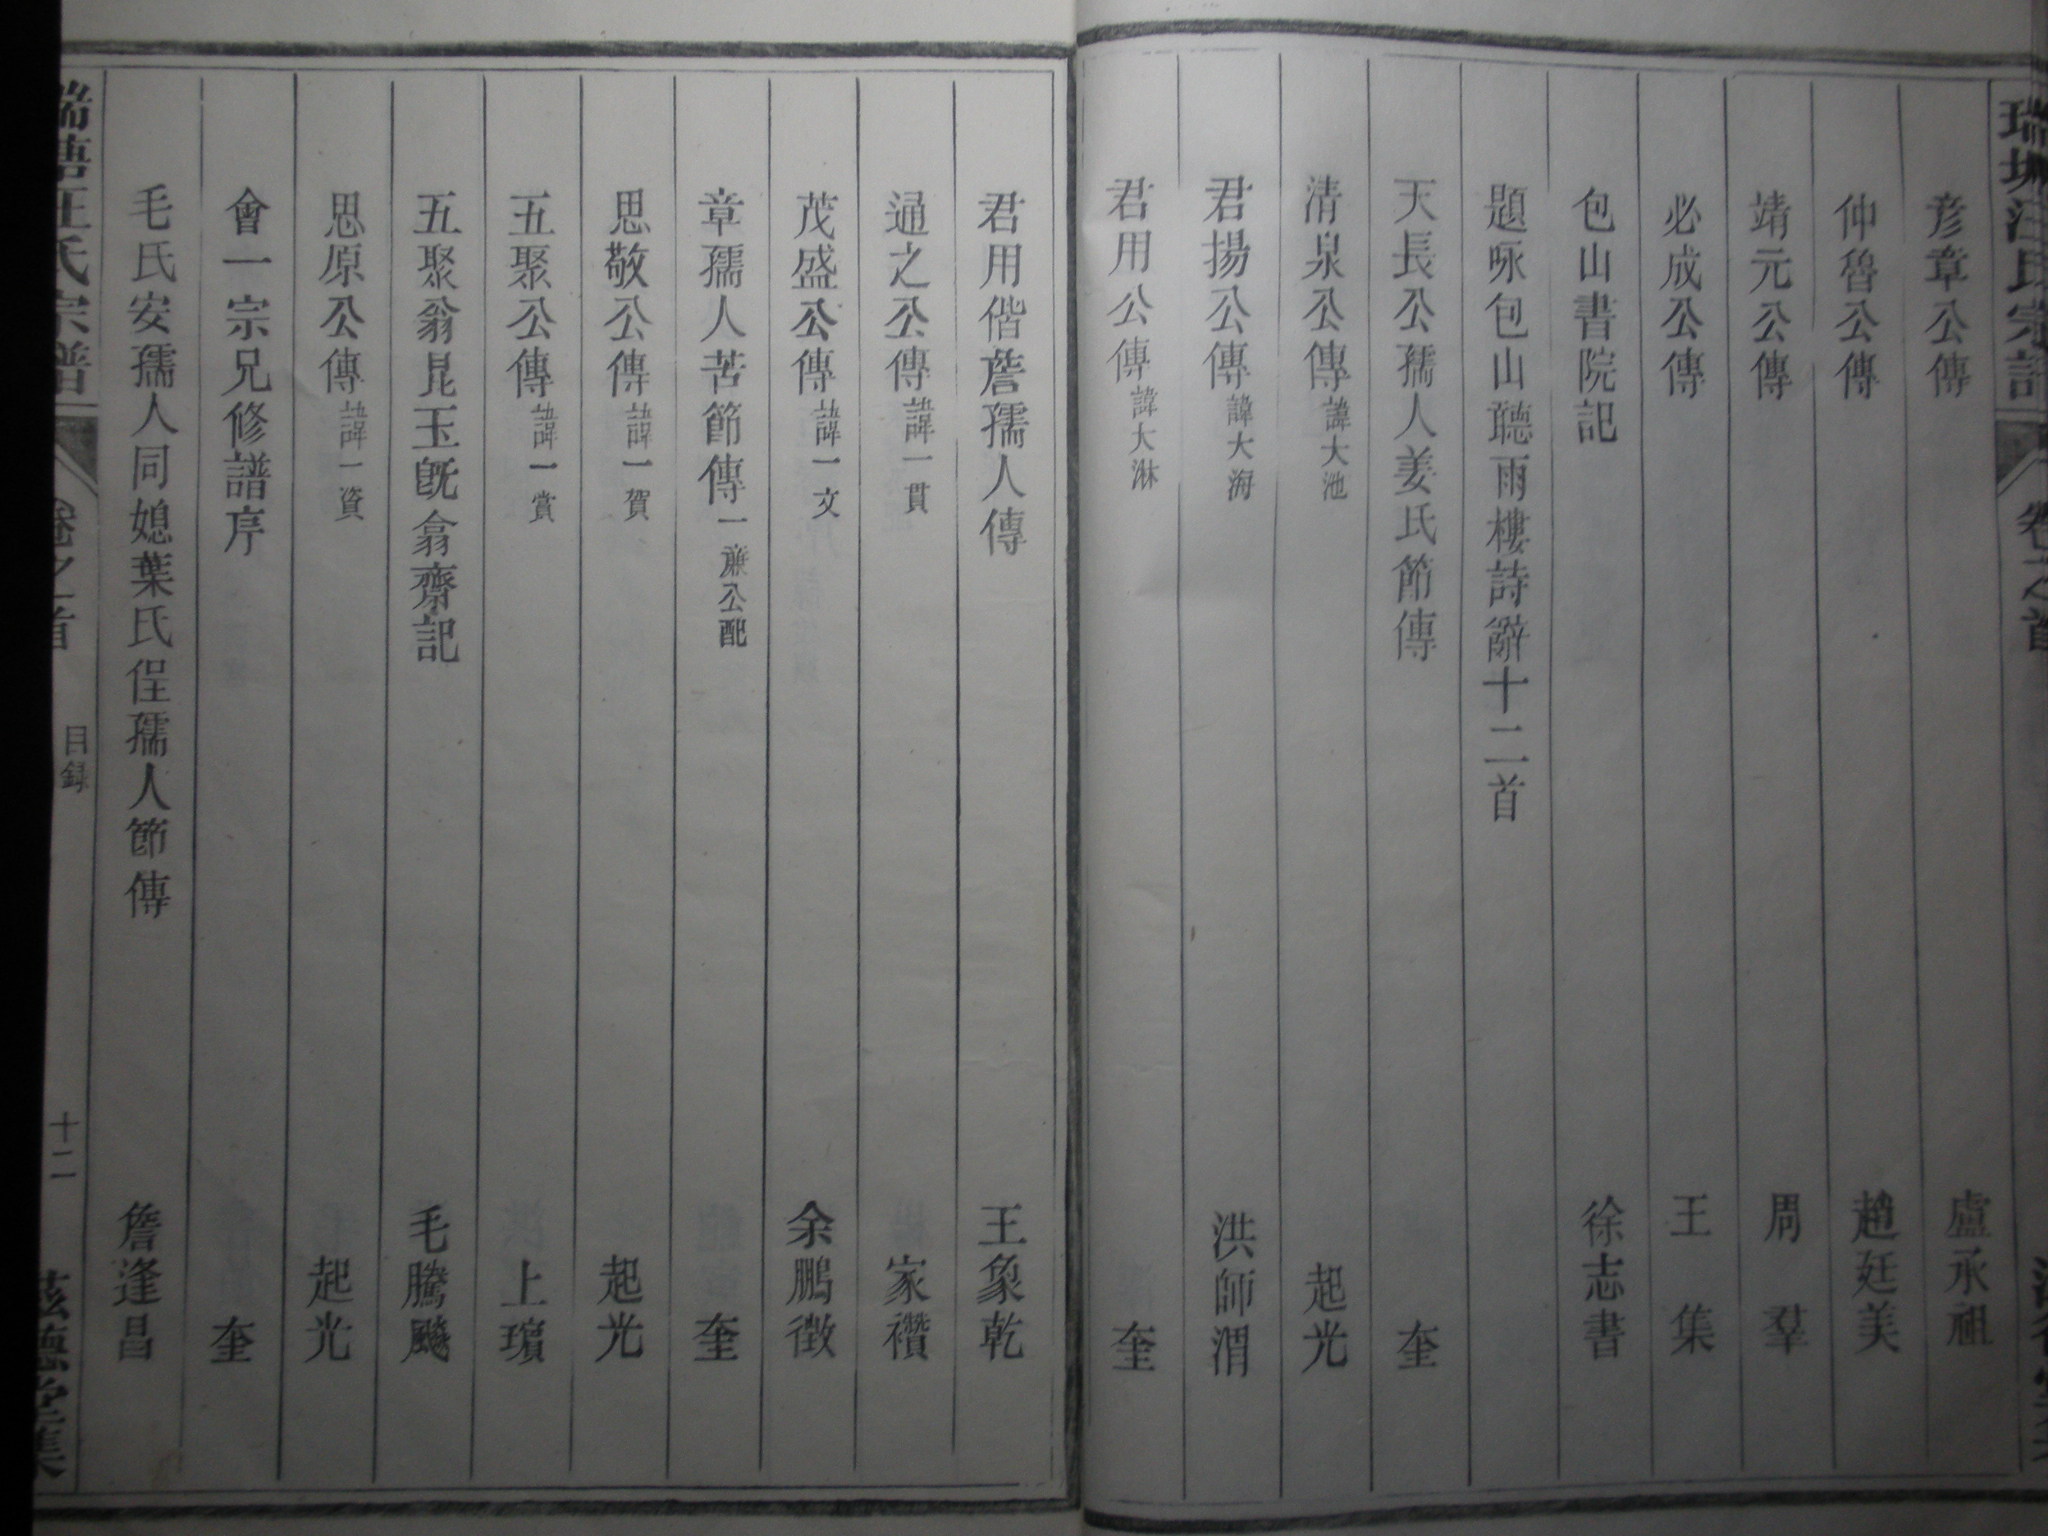 彦章公傳 盧承祖
仲魯公傳 趙廷美
靖元公傳 周羣
必成公傳 王集
包山書院記 徐志書
題咏包山聽雨樓詩辭十二首
天長公孺人姜氏節傳 奎
清泉公傳諱大池 起光
君揚公傳諱大海 洪師渭
君用公傳諱大淋 奎
君用偕詹孺人傳 王象乾
通之公傳諱一貫 家禶
茂盛公傳諱一文 余鵬徵
章孺人苦節傳一㢘公配 奎
思敬公傳諱一賀 起光
五聚公傳諱一賞 上璸
五聚翁昆玉旣翕齋記 毛騰飈
思原公傳諱一資 起光
會一宗兄修譜序 奎
毛氏安孺人同媳葉氏侄孺人節傳 詹逢昌
汪氏宗譜 卷之首 目録 十二 德堂集